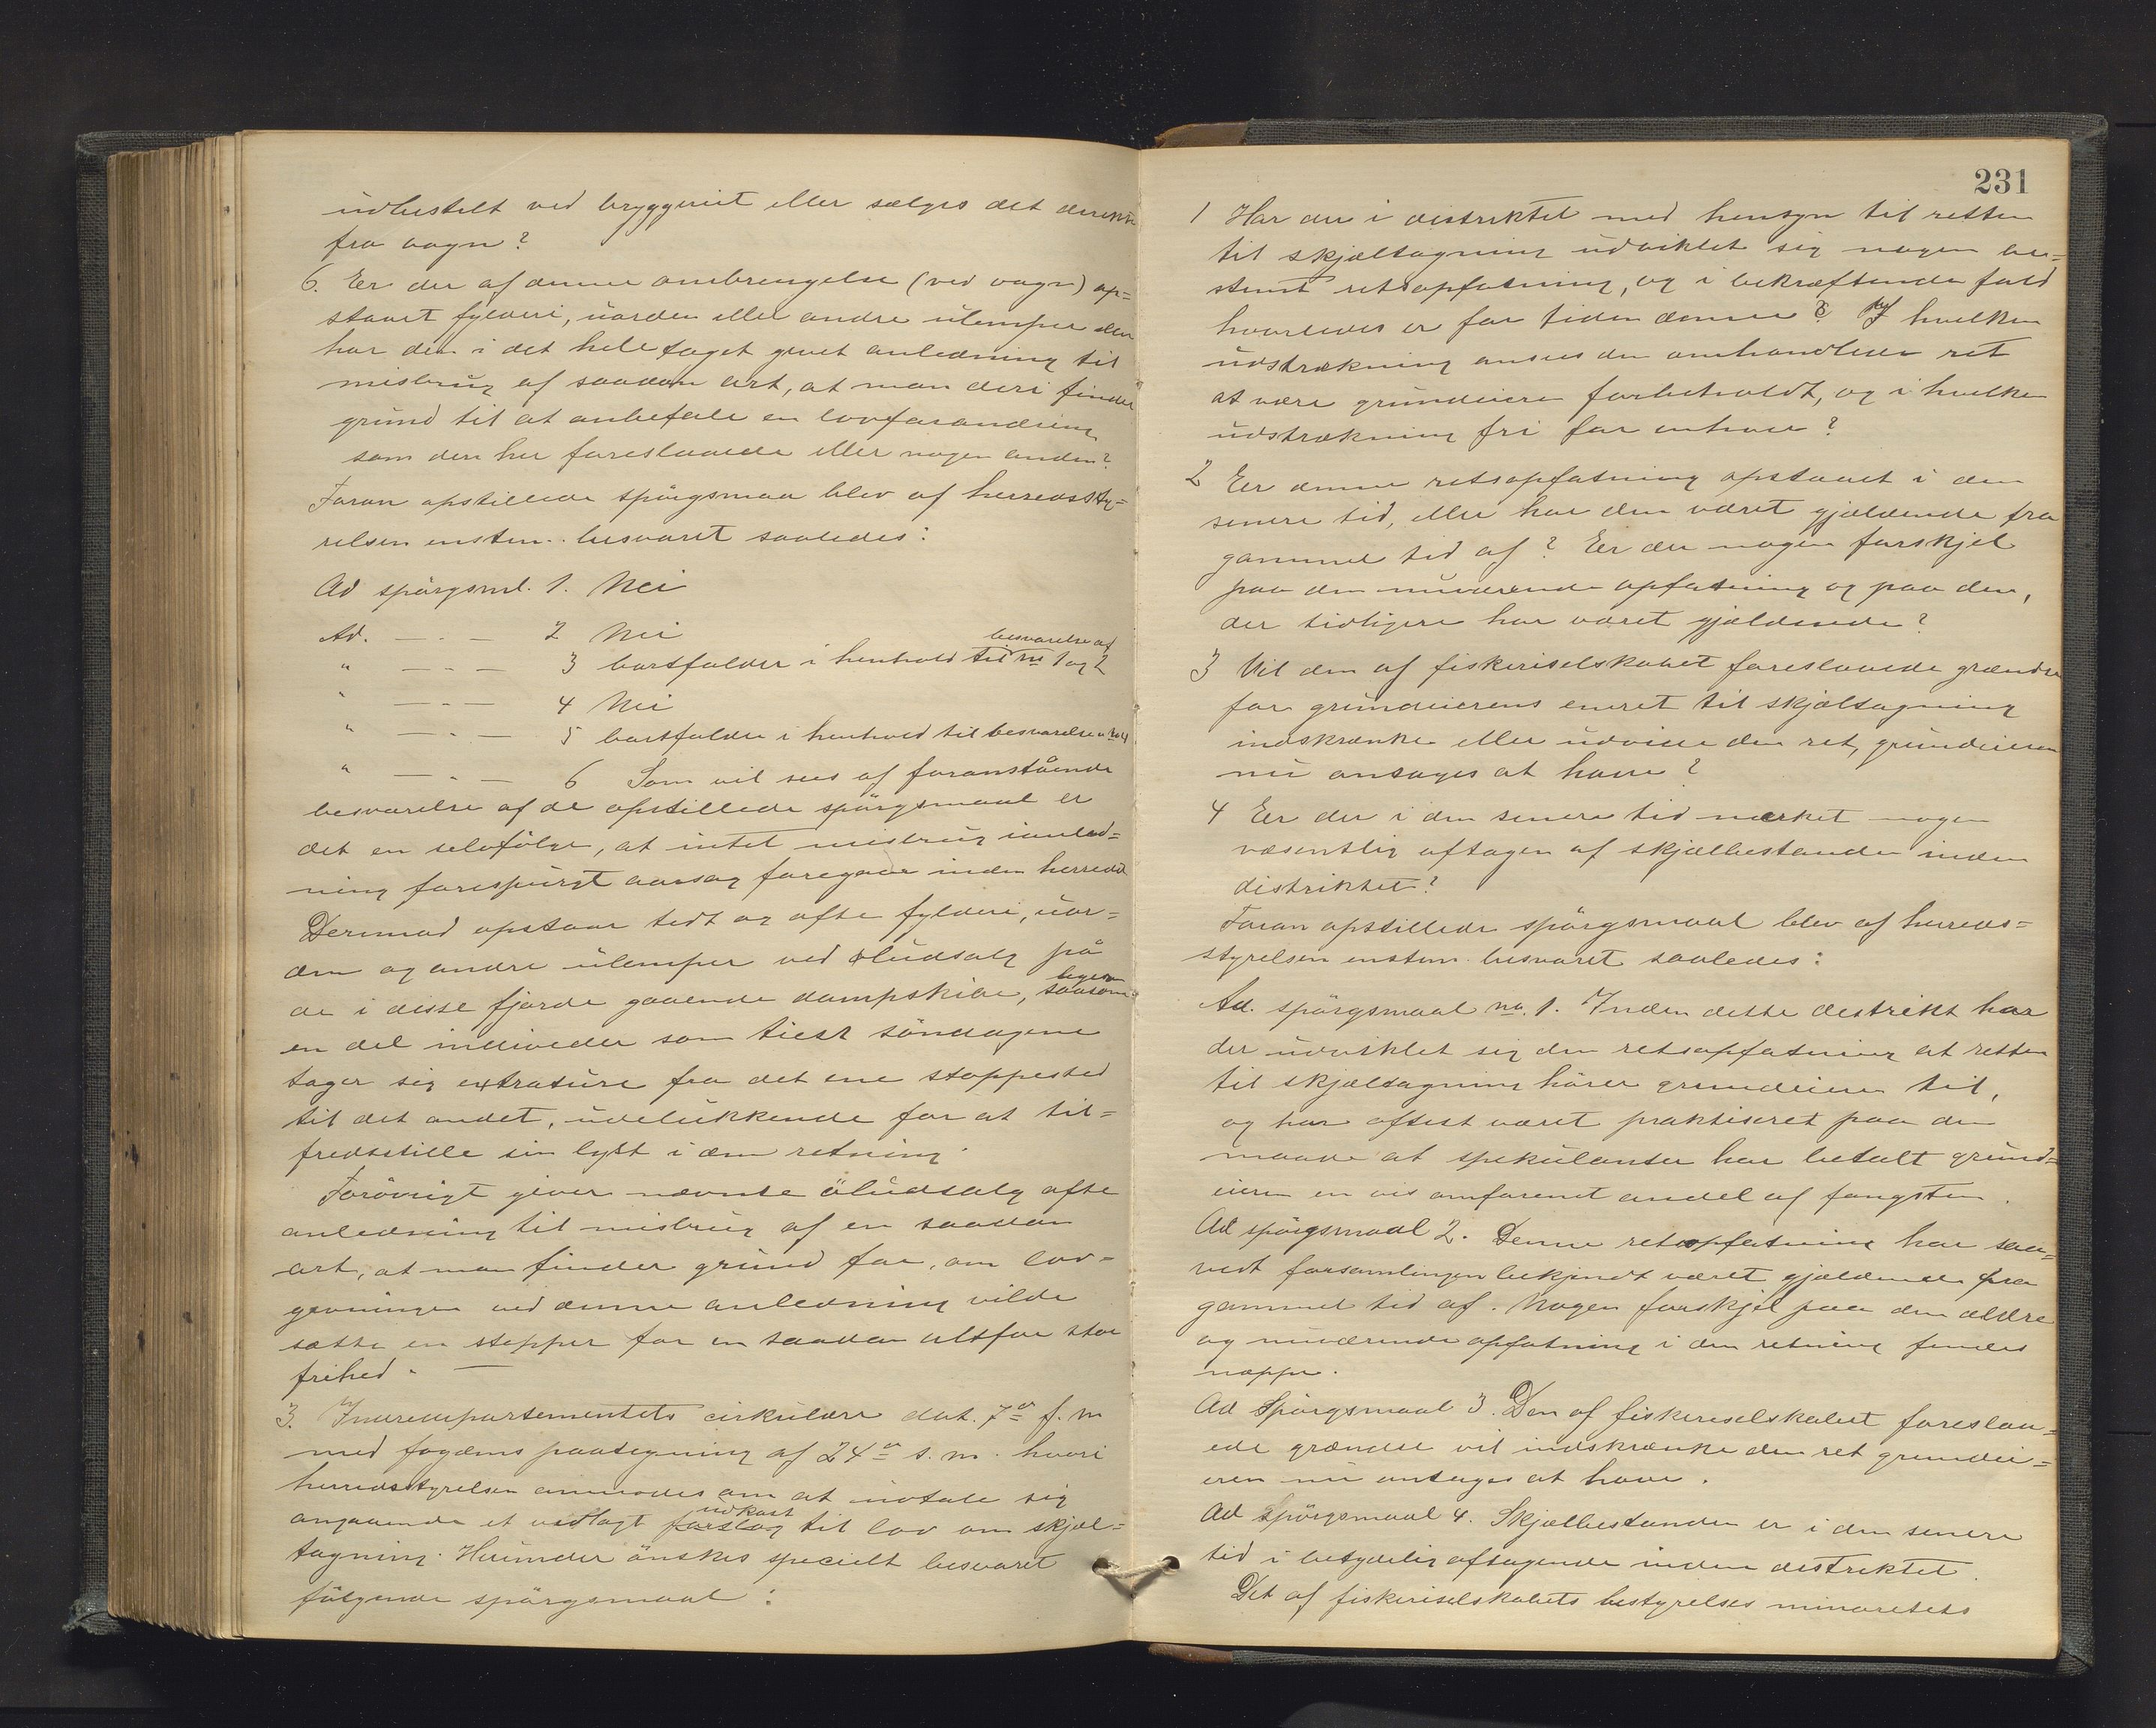 udbestelt ved bryggeriet eller sælges det direkte
fra vogn?
6. Er der af denne ombrengelse (ved vogn) op=
staaet fylderi, uorden eller andre ulemper eller
har den i det hele taget givet anledning til
misbrug af saadan art, at man deri finder
grund til at anbefale en lovforandring
som den her foreslaaede eller nogen anden?
Foran opstillede spörgsmaa blev af herredssty=
relsen enstem. besvaret saaledes:
Ad spörgsml. 1. Nei
Ad. — " — 2 Nei
" — " — 3 bortfalder i henhold til besvarelse af no 1 og 2
" — " — 4 Nei
" — " — 5 bortfalder i henhold til besvarelse no 4
" — " — 6 Som vil sees af foranstående
besvarelse af de opstillede spörgsmaal er
det en selvfölge, at intet misbrug i anled=
ning forespurgt aarsag foregaar inden herredet
Derimod opstaar tidt og ofte fylderi, uor=
den og andre ulemper ved öludsalg på
de i disse fjorde gaaende dampskibe, ligesom saasom
en del individer som tiest söndagene
tager sig extrature fra det ene stoppested
til det andet, udelukkende for at til=
fredsstille sin lyst i den retning.
Forövrigt giver nævnte öludsalg ofte
anledning til misbrug af en saadan
art, at man finder grund for, om lov=
givningen ved denne anledning vilde
sætte en stopper for en saadan altfor stor
frihed. —
3. Indredepartementets cirkulære dat. 7de f. m
med fogdens paategning af 24de s. m. hvori
herredsstyrelsen anmodes om at udtale sig
angaaende et vedlagt forslag udkast til lov om skjæl=
tagning. Herunder önskes specielt besvaret
fölgende spörgsmaal:
231
1 Har der i distriktet med hensyn til retten
til skjæltagning udviklet sig nogen be=
stemt retsopfatning, og i bekræftende fald
hvorledes er for tiden denne? I hvilken
udstrækning ansees den omhandlede ret
at være grundeieren forbeholdt, og i hvilken
udstrækning fri for enhver?
2 Er denne retsopfatning opstaaet i den
senere tid, eller har den været gjældende fra
gammel tid af? Er der nogen forskjel
paa den nuværende opfatning og paa den,
der tidligere har været gjældende?
3 Vil den af fiskeriselskabet foreslaaede grændse
for grundeierens eneret til skjæltagning
indskrænke eller udvide den ret, grundeieren
nu antages at have?
4 Er der i den senere tid mærket nogen
væsentlig aftagen af skjælbestanden inden
distriktet?
Foran opstillede spörgsmaal blev af herreds=
styrelsen enstem. besvaret saaledes:
Ad. spörgsmaal no. 1. Inden dette destrikt har
der udviklet sig den retsopfatning at retten
til skjæltagning hörer grundeieren til,
og har oftest været praktiseret paa den
maade at spekulanter har betalt grund=
eieren en vis omforenet andel af fangsten.
Ad spörgsmaal 2. Denne retsopfatning har saa=
vidt forsamlingen bekjendt været gjældende fra
gammel tid af. Nogen forskjel paa den ældre
og nuværende opfatning i den retning findes
neppe.
Ad Spörgsmaal 3. Den af fiskeriselskabet foreslaa=
ede grændse vil indskrænke den ret grundei=
eren nu antages at have.
Ad Spörgsmaal 4. Skjælbestanden er i den senere
tid i betydelig aftagende inden destriktet.
Det af fiskeriselskabets bestyrelses minoritets